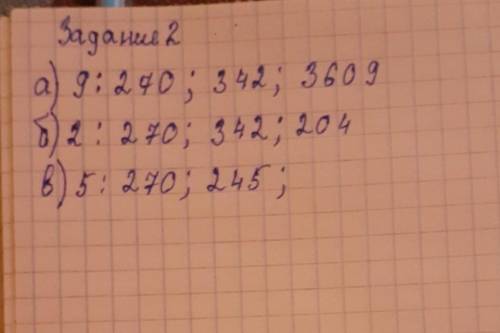 Задание 2
а) 9 : 270 ; 342 ; 3609
б) 2 : 270 ; 342 ; 204
в) 5 : 270 ; 245 ;